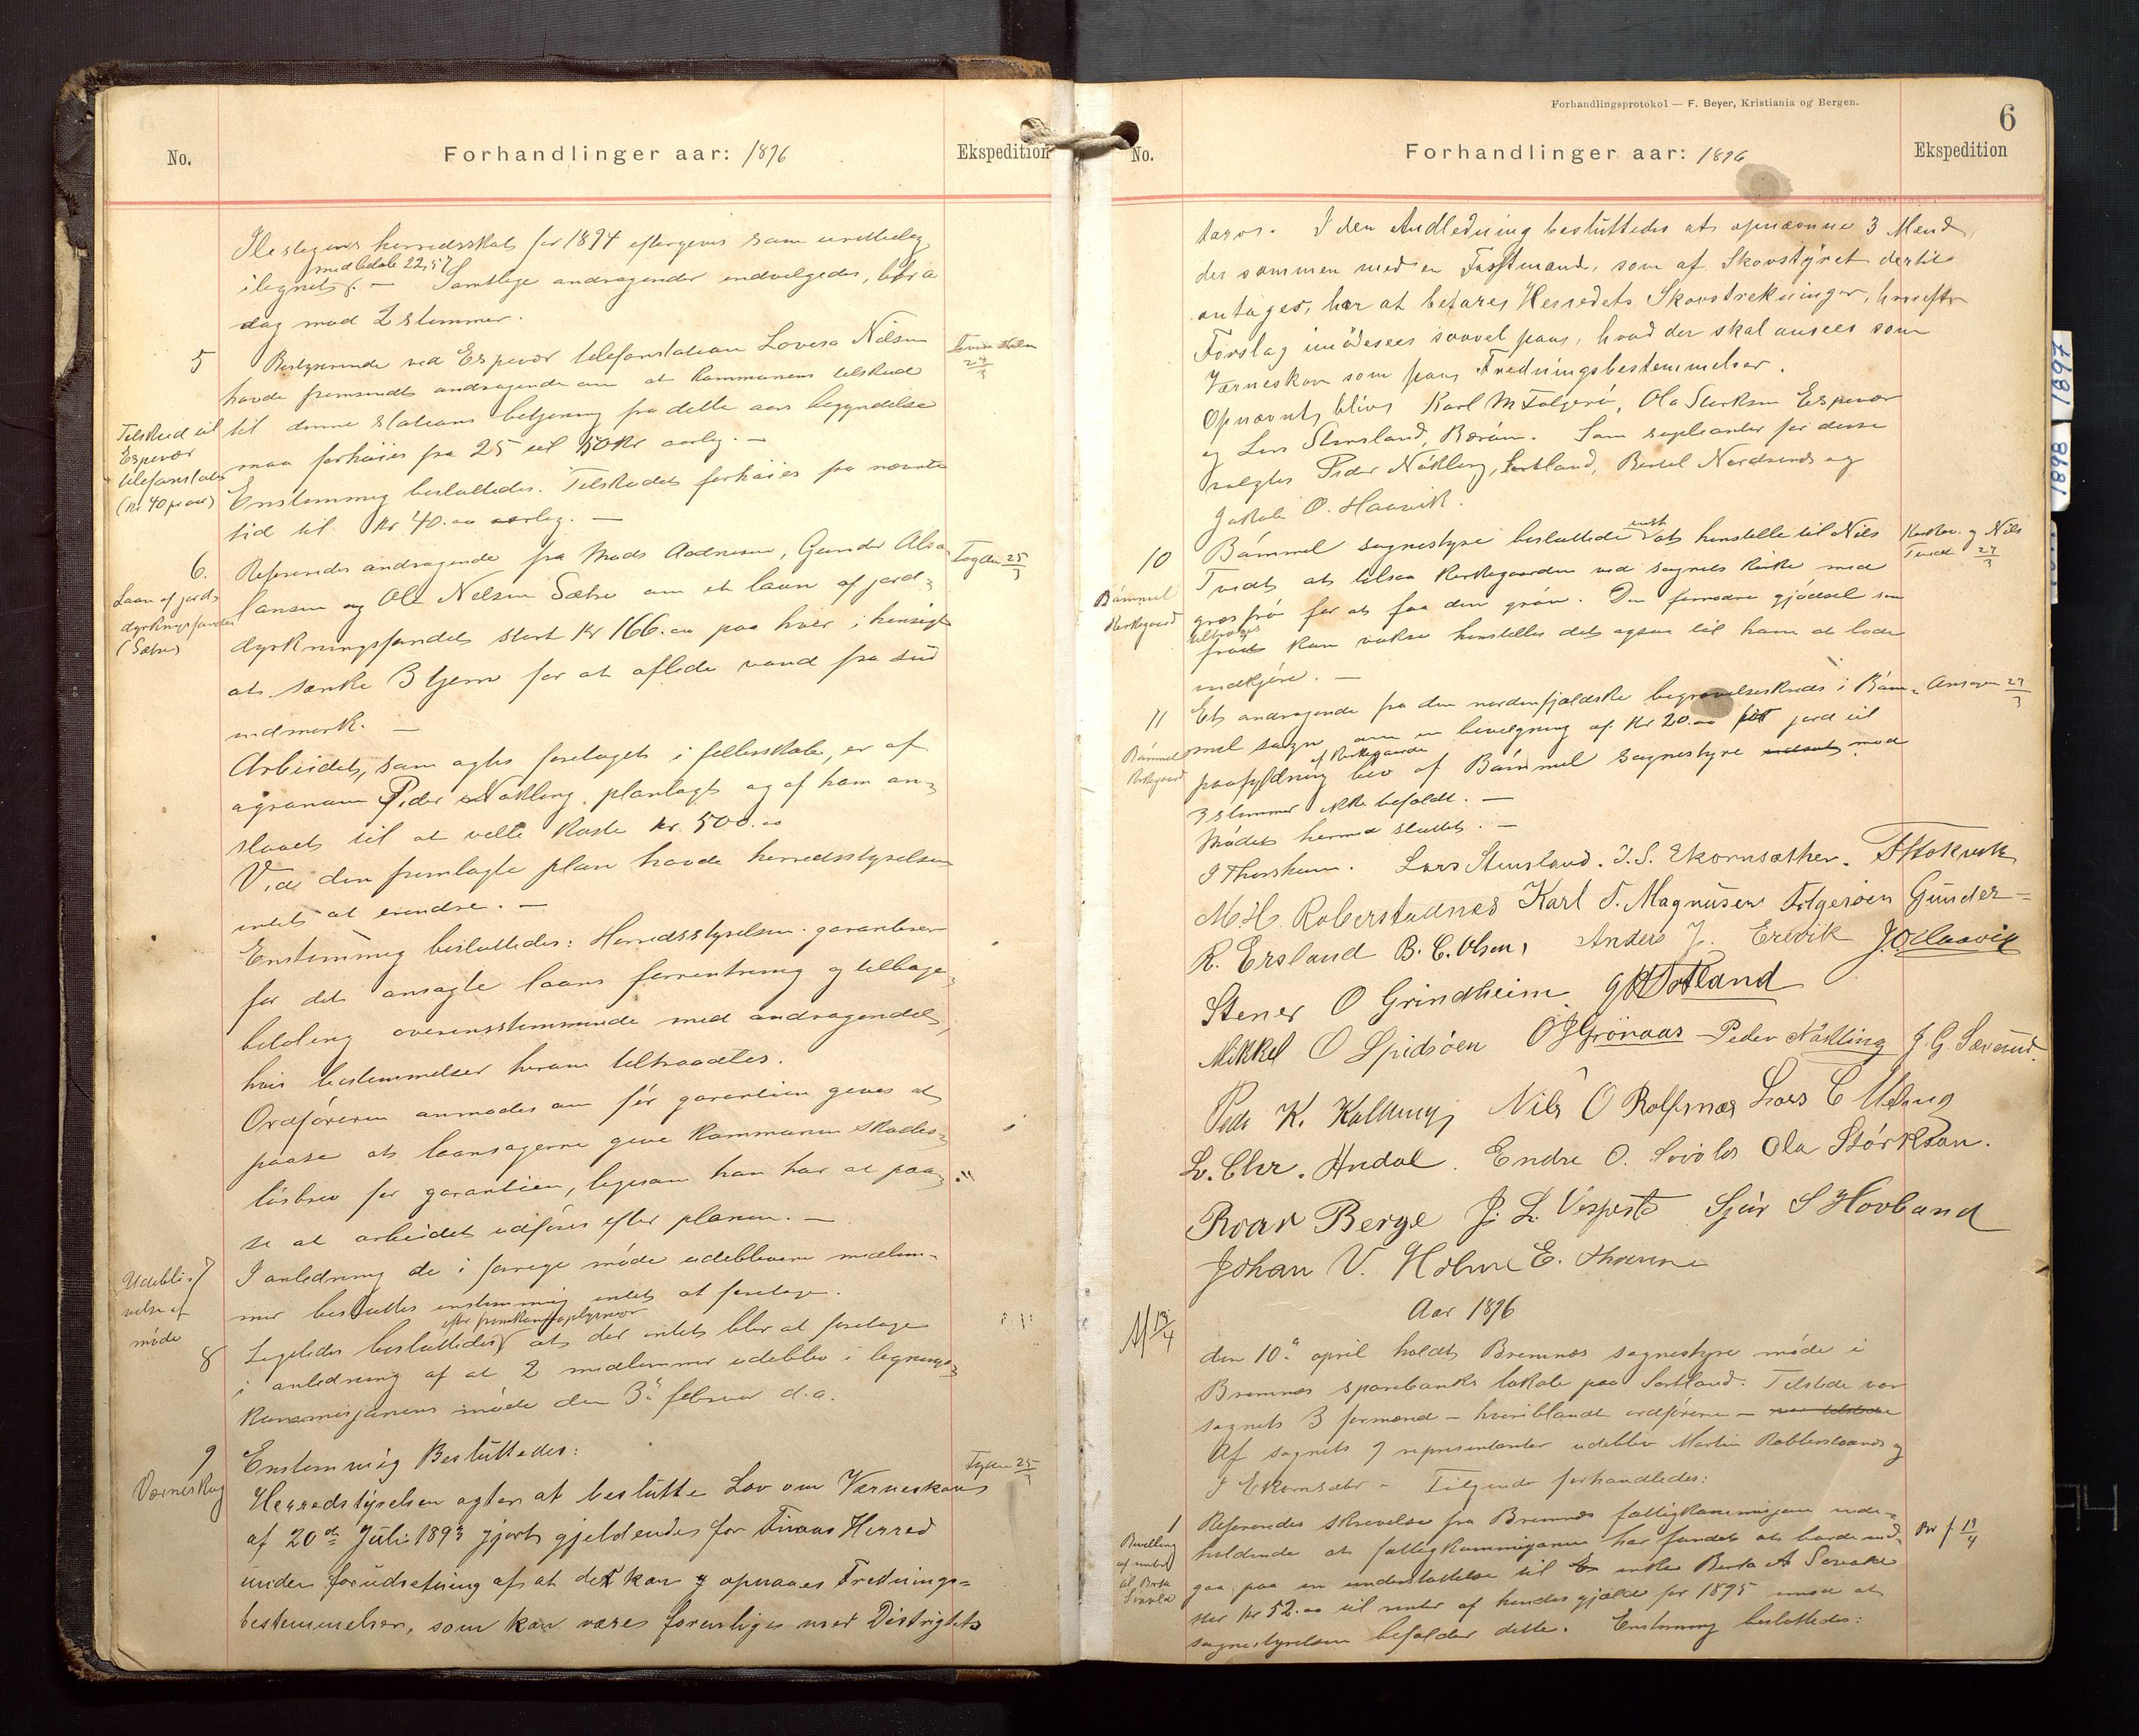 No.
Forhandlinger aar: 1896
Ekspedition
herredsskat for 1894 eftergives som urettelig
med beløb 22,57
ilegnet. — Samtlige andragender indvilgedes,
dag mod 2 stemmer.
5
Bestyrerinde ved Espevær telefonstation Lovisa Nilsen
havde fremsendt andragende om at kommunens tilskud
til denne stations betjening fra dette aars begyndelse
maa forhøies fra 25 til 50 kr aarlig. —
Enstemmig besluttedes: Tilskudet forhøies fra nævnte
tid til kr 40.00 aarlig. —
Tilskud til
Espevær
telefonstation
(kr 40 pr aar)
24/3
6.
Refereredes andragende fra Mads Aadnesen, Gunder
og Ole Nilsen Sætre om et laan af jord-
dyrkningsfondet stort kr 166.00 paa hver i hensigt
at sænke 3 tjern for at aflede vand fra sin
indmark. —
Laan af jord-
dyrkningsfondet
(Sætre)
25/3
Arbeidet, som agtes foretaget i fellesskab, er af
agronom Peder Nökling planlagt og af ham an-
slaaet til at ville koste kr. 500.00
Ved den fremlagte plan havde herredsstyrelsen
intet at erindre. —
Enstemmig besluttedes: Herredsstyrelsen garanterer
for det ansøgte laans forrentning og tilbage-
betaling overensstemmende med andragendet,
hvis bestemmelser herom tiltraadtes.
Ordføreren anmodes om før garantien gives at
paase at laansøgerne give kommunen skades-
løsbrev for garantien, ligesom han har at paa-
se at arbeidet udføres efter planen. —
7
Udebli-
velse af
møde
I anledning de i forrige møde udeblevne medlem-
mer besluttes enstemmig intet at foretage.
8
efter fremkomne oplysninger
Ligeledes besluttedes at der intet blev at foretage
i anledning af at 2 medlemmer udeblev i lignings-
kommisjonens møde den 3. februar d.a.
9
Værneskog
Enstemmig Besluttedes:
Herredstyrelsen agter at beslutte Lov om Værneskove
af 20de Juli 1893 gjort gjeldendes for Finaas Herred
under forudsetning af at det kan opnaaes Frednings=
bestemmelser, som kan være forenlige med Distrigtets
25/3
Forhandlingsprotokol — F. Beyer, Kristiania og Bergen.
6
No.
Forhandlinger aar: 1896
Ekspedition
tarv. I den Andledning besluttedes at opnævne 3 Mend
der sammen med en Forstmand, som af Skovstyret dertil
antages, har at befare Herredets Skovstrekninger, hvorefter
Forslag imødesees saavel paa, hvad der skal ansees som
Værneskov som paa Fredningsbestemmelser.
Opnævnt blive Karl M Folgerö, Ola Størksen Espevær
og Lars Stensland, Som supleanter for disse
valgtes Peder Nökling, Sortland, Bertel Nordsund og
Jakob O. Haavik.
10
Bömmel
Kirkegaard
Bømmel sognestyre besluttede enst at henstille til Nils
Tvedt at tilsaa Kirkegaarden ved sognets kirke med
græsfrø for at faa den grøn. Den fornødne gjødsel som
tiltrænges
frøet kan vokse henstilles det ogsaa til ham at lade
indkjøre. —
og Nils
Tvedt 24/3
11
Bömmel
Kirkegaard
Et andragende fra den nordenfjeldske begravelseskreds i Bøm-
mel sogn om en bevilgning af kr 20.00 til jord til
af Kirkegaarden
paafyldning blev af Bømmel sognestyre mod
3 stemmer ikke bifaldt. —
Mødet hermed sluttet. —
Ansøgeren 27/3
Lars Stensland. J. S. Ekornsæther.
M. H. Roberstadnes Karl T. Magnusen Folgeröen Gunder-
R. Ersland B. C. Olsen, Anders J. Erevik J.O. Haavik
Stener O Grindheim
Mikkel O Spidsöen O J Grönaas Peder Nökling J. G.
Peder K. Nils O Rolfsnes Lars C
L. Chr. Andal. Endre O. Ola Störkson.
Roar Berge J. L. Vespestø Sjur S Hovland
Johan V. Holme E.
Aar 1896
Af 13/4
den 10. april holdt Bremnes sognestyre møde i
Bremnes sparebanks lokale paa Sortland. Tilstede var
sognets 3 formænd — hvoriblandt ordføreren —
Af sognets 9 repræsentanter udeblev Martin og
J Ekornsæter — Følgende forhandledes:
1
Bevilling
Refereredes skrivelse fra Bremnes fattigkommisjon inde-
holdende at fattigkommisjonen har fundet at burde ind-
gaa paa en understøttelse til enke Berta
stor kr 52.00 til renter af hendes gjæld for 1895 imod at
sognestyrelsen bifalder dette. Enstemmig besluttedes:
13/4
1897
1898